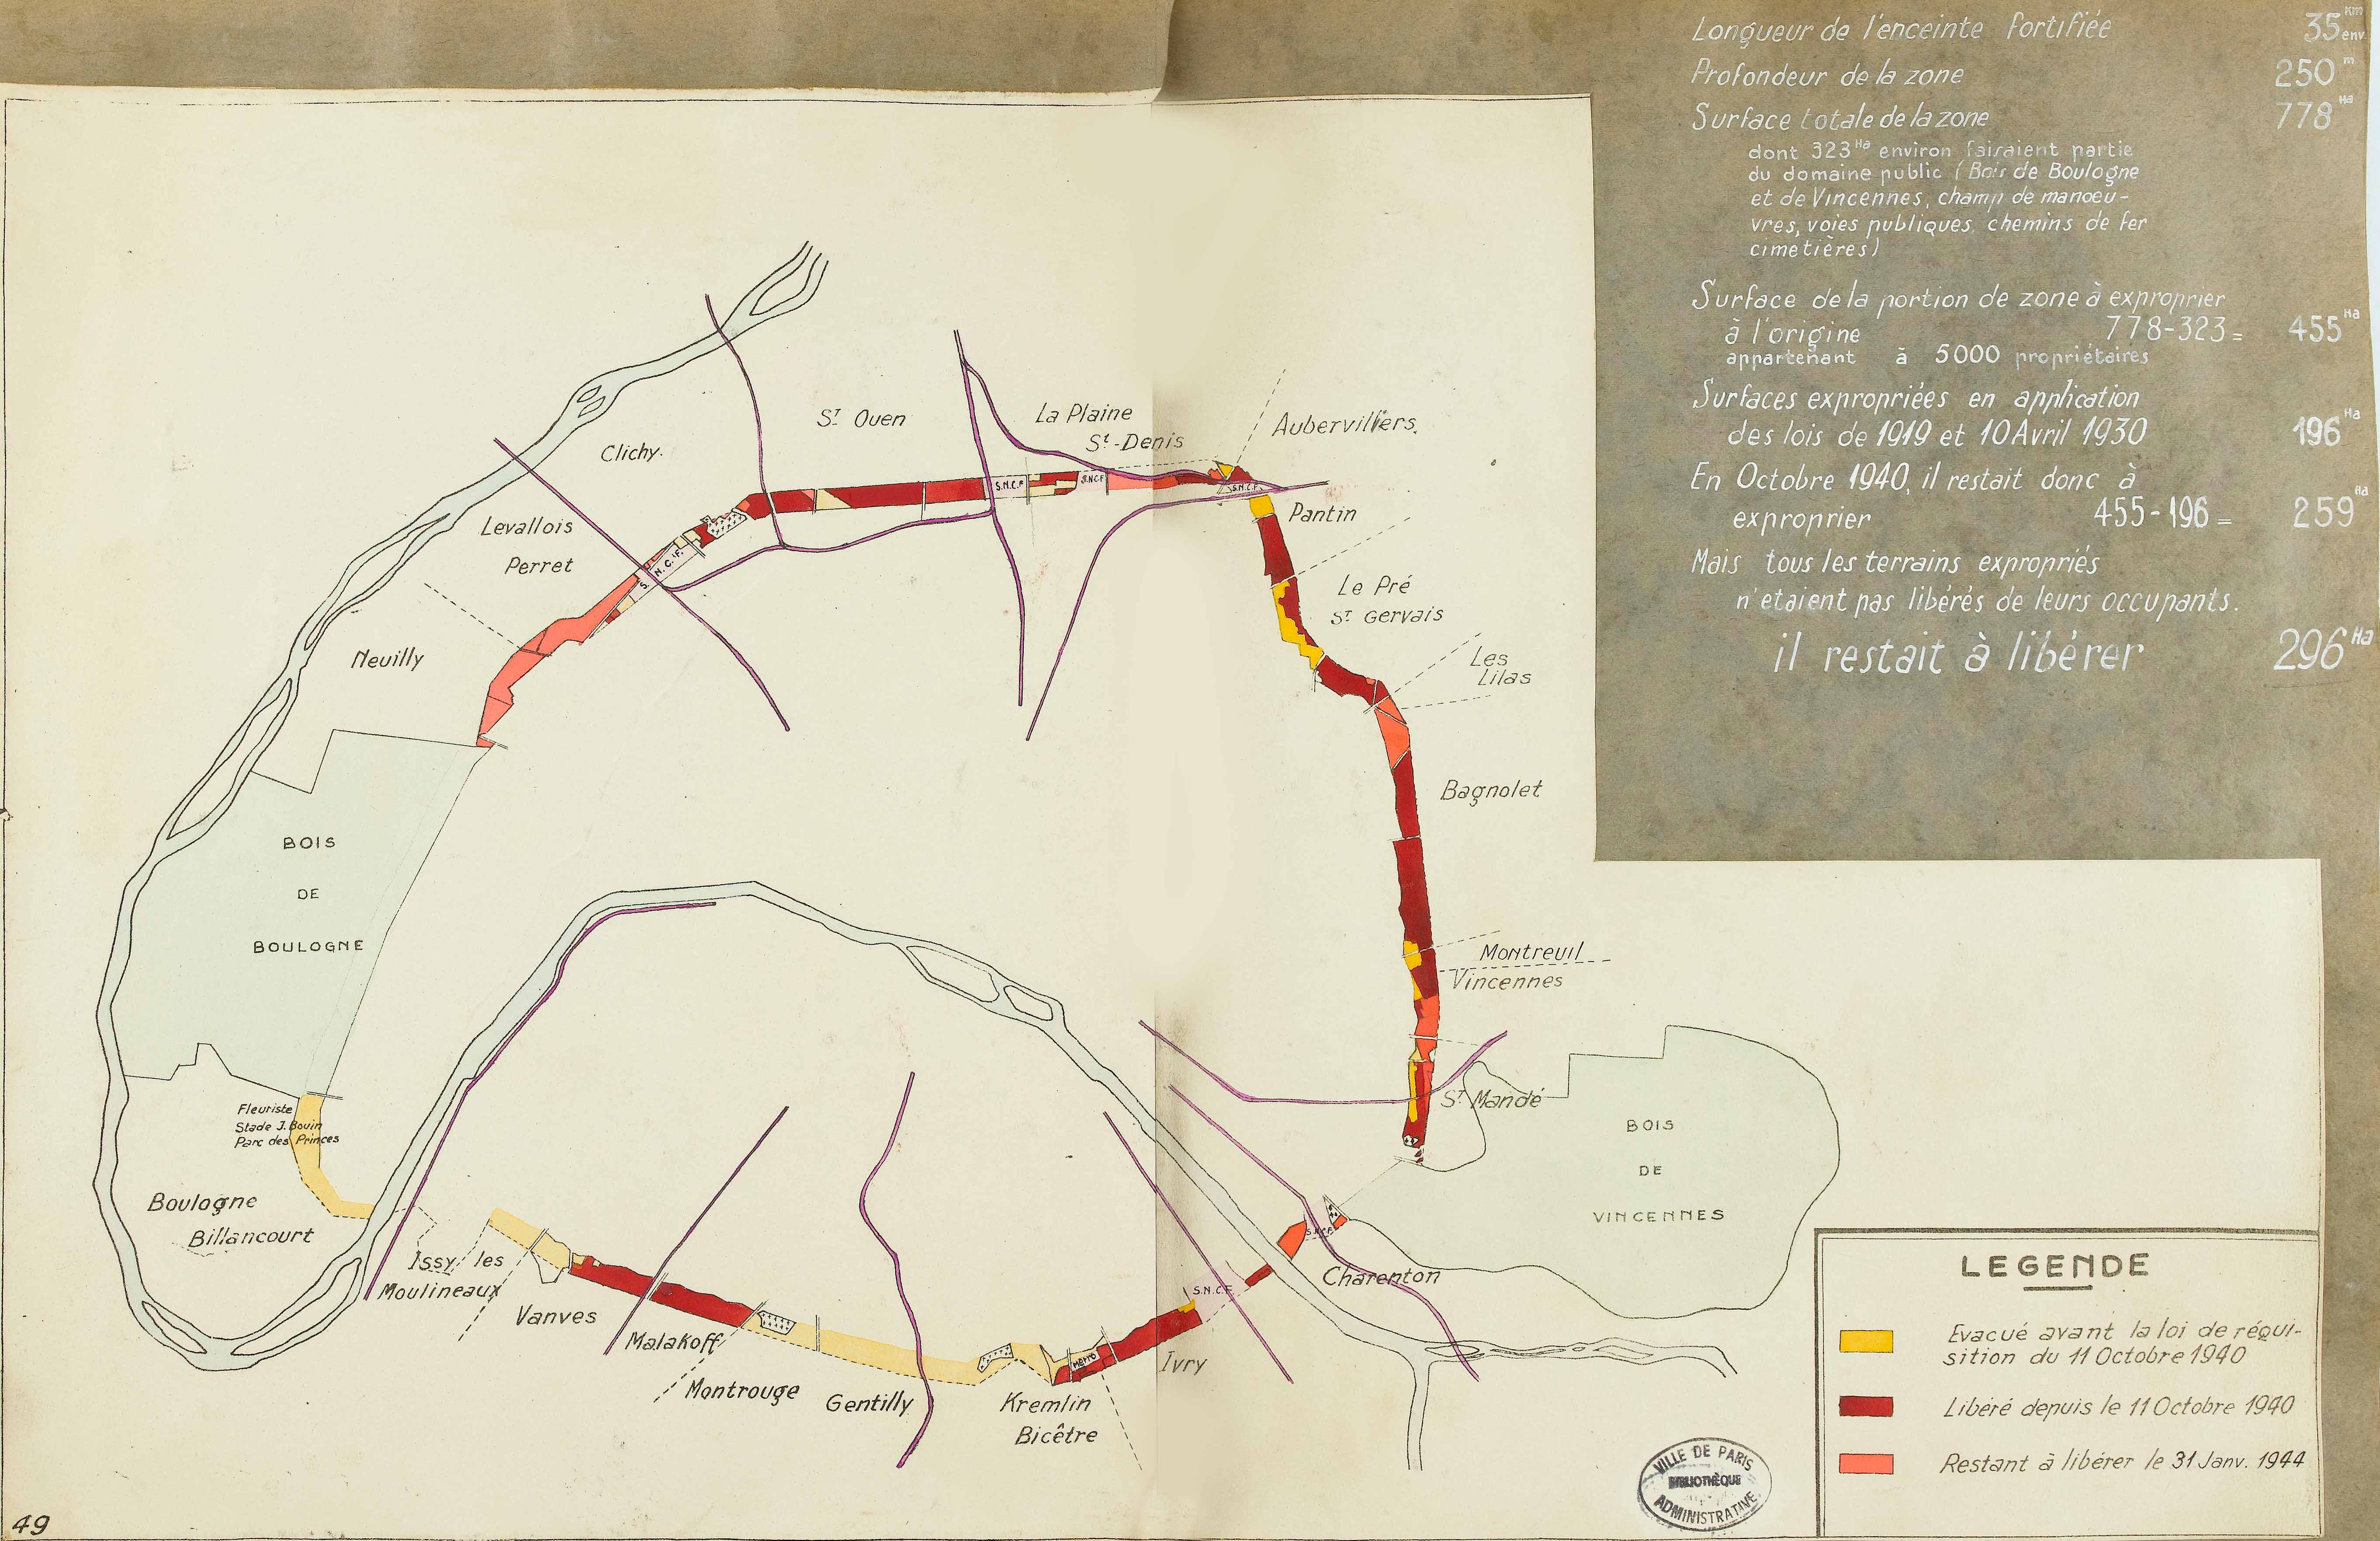 Longueur de l'enceinte fortifiée 35 Km env.
Profondeur de la zone 250 m
Surface totale de la zone 778 Ha
dont 323 Ha environ faisaient partie
du domaine public (Bois de Boulogne
et de Vincennes, champ de manoeu-
vres, voies publiques, chemins de fer
cimetières)
Surface de la portion de zone à exproprier
à l'origine 778-323= 455 Ha
appartenant à 5000 propriétaires
Surfaces expropriées en application
des lois de 1919 et 10 Avril 1930 196 Ha
En Octobre 1940, il restait donc à
exproprier 455-196= 259 Ha
Mais tous les terrains expropriés
n'etaient pas libérés de leurs occupants.
il restait à libérer 296 Ha
St Ouen
La Plaine
St-Denis
Aubervilliers.
Clichy.
S.N.C.F.
S.N.C.F
S.N.C.F.
Levallois
Perret
S.N.C.F.
Pantin
Le Pré
St Gervais
Neuilly
Les
Lilas
Bagnolet
BOIS
DE
BOULOGNE
Montreuil
Vincennes
St Mandé
Fleuriste
Stade J. Bouin
Parc des Princes
BOIS
DE
VINCENNES
Boulogne
Billancourt
S.N.C.F.
Issy les
Moulineaux
Charenton
S.N.C.F.
Vanves
Malakoff
Montrouge
Gentilly
Kremlin
Bicêtre
METRO
Ivry
LEGENDE
Evacué avant la loi de réqui-
sition du 11 Octobre 1940
Libéré depuis le 11 Octobre 1940
Restant à libérer le 31 Janv. 1944
VILLE DE PARIS
BIBLIOTHÈQUE
ADMINISTRATIVE
49